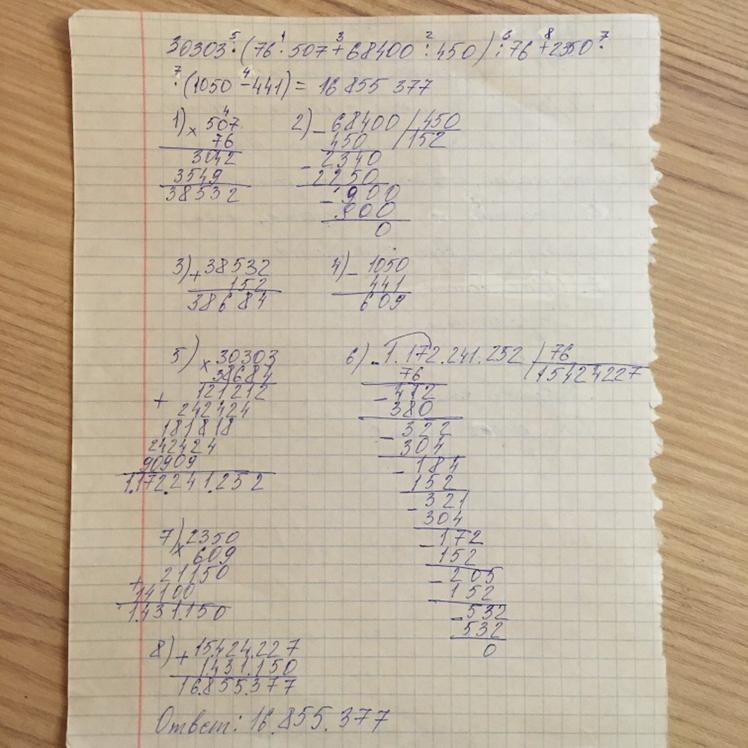 30303·(76·507+68400:450):76+2350·
5 1 3 2 6 8 7
·(1050-441)= 16 855 377
7 4
1) 2)
4
× 507 - 68400 | 450
76 450 152
3042 - 2340
3549 2250
38532 - 900
900
0
3) + 38532 4) - 1050
152 441
38684 609
5) × 30303 6) - 1.172.241.252 | 76
38684 76 15424227
+ 121212 - 412
242424 380
181818 - 322
242424 304
90909 - 184
1.172.241.252 152
- 321
304
7) 2350 - 172
× 609 152
+ 21150 - 205
14100 152
1.431.150 - 532
532
8) + 15.424.227 0
1.431.150
16.855.377
Ответ: 16.855.377